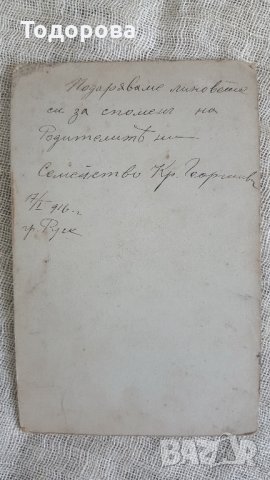 Тодорова
Подаряваме ликовете
си за спомен на
Родителитѣ ни
Семейство Кр. Георгиеви
916 г.
гр. Русе
BAZAR